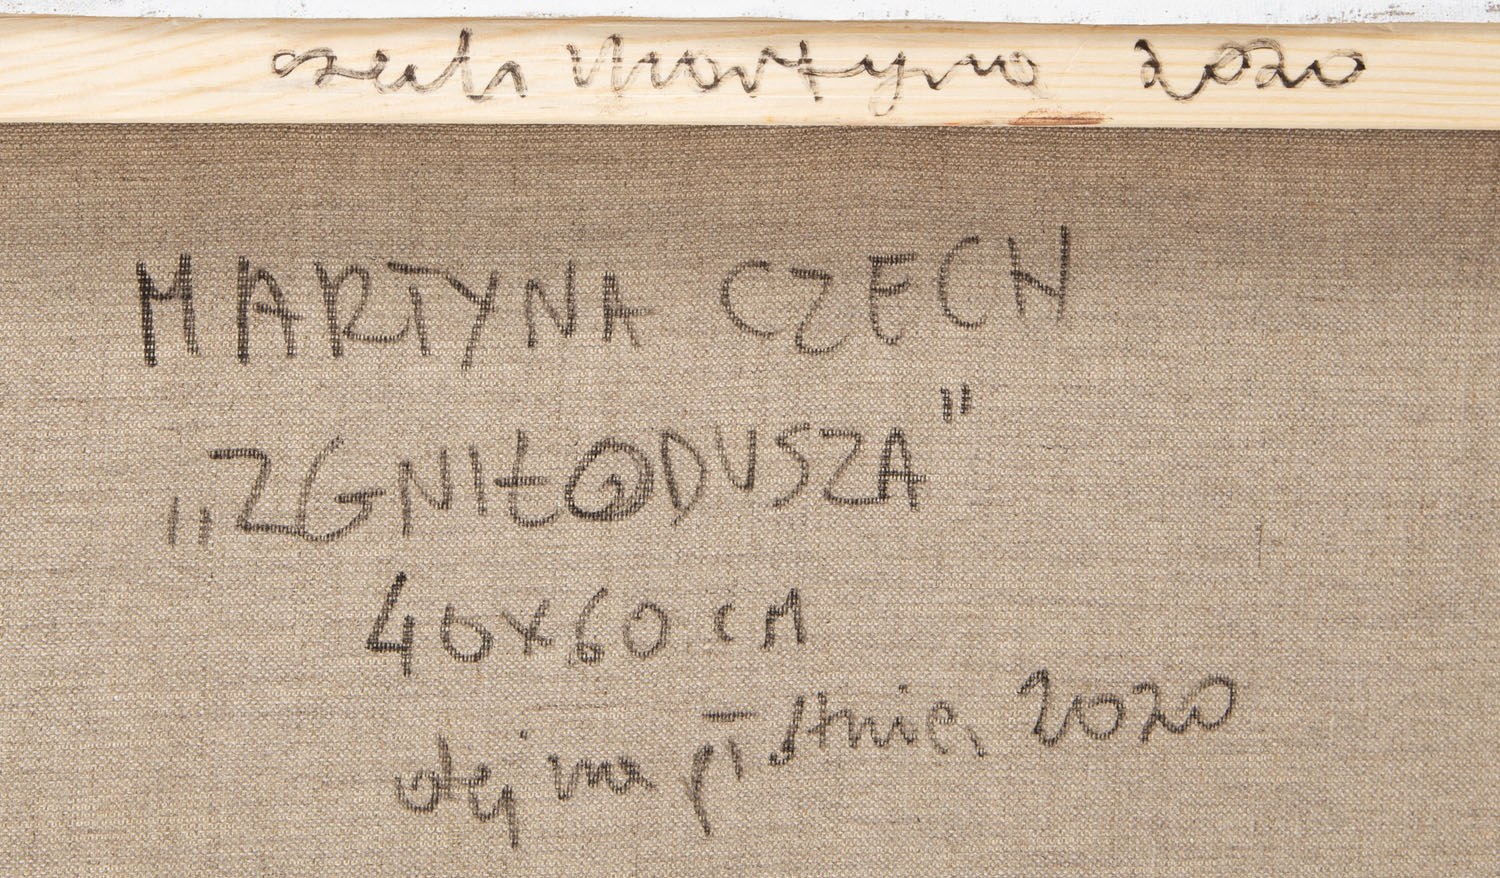 czech Martyna 2020
MARTYNA CZECH
„ZGNIŁODUSZA"
40x60 cM
olej na płótnie, 2020